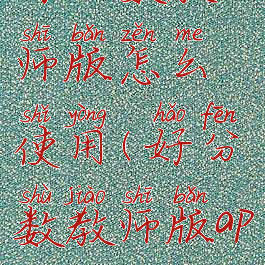 shī bǎn zěn me
师版怎么
shǐ yòng hǎo fēn
使用(好分
shù jiào shī bǎn
数教师版ap